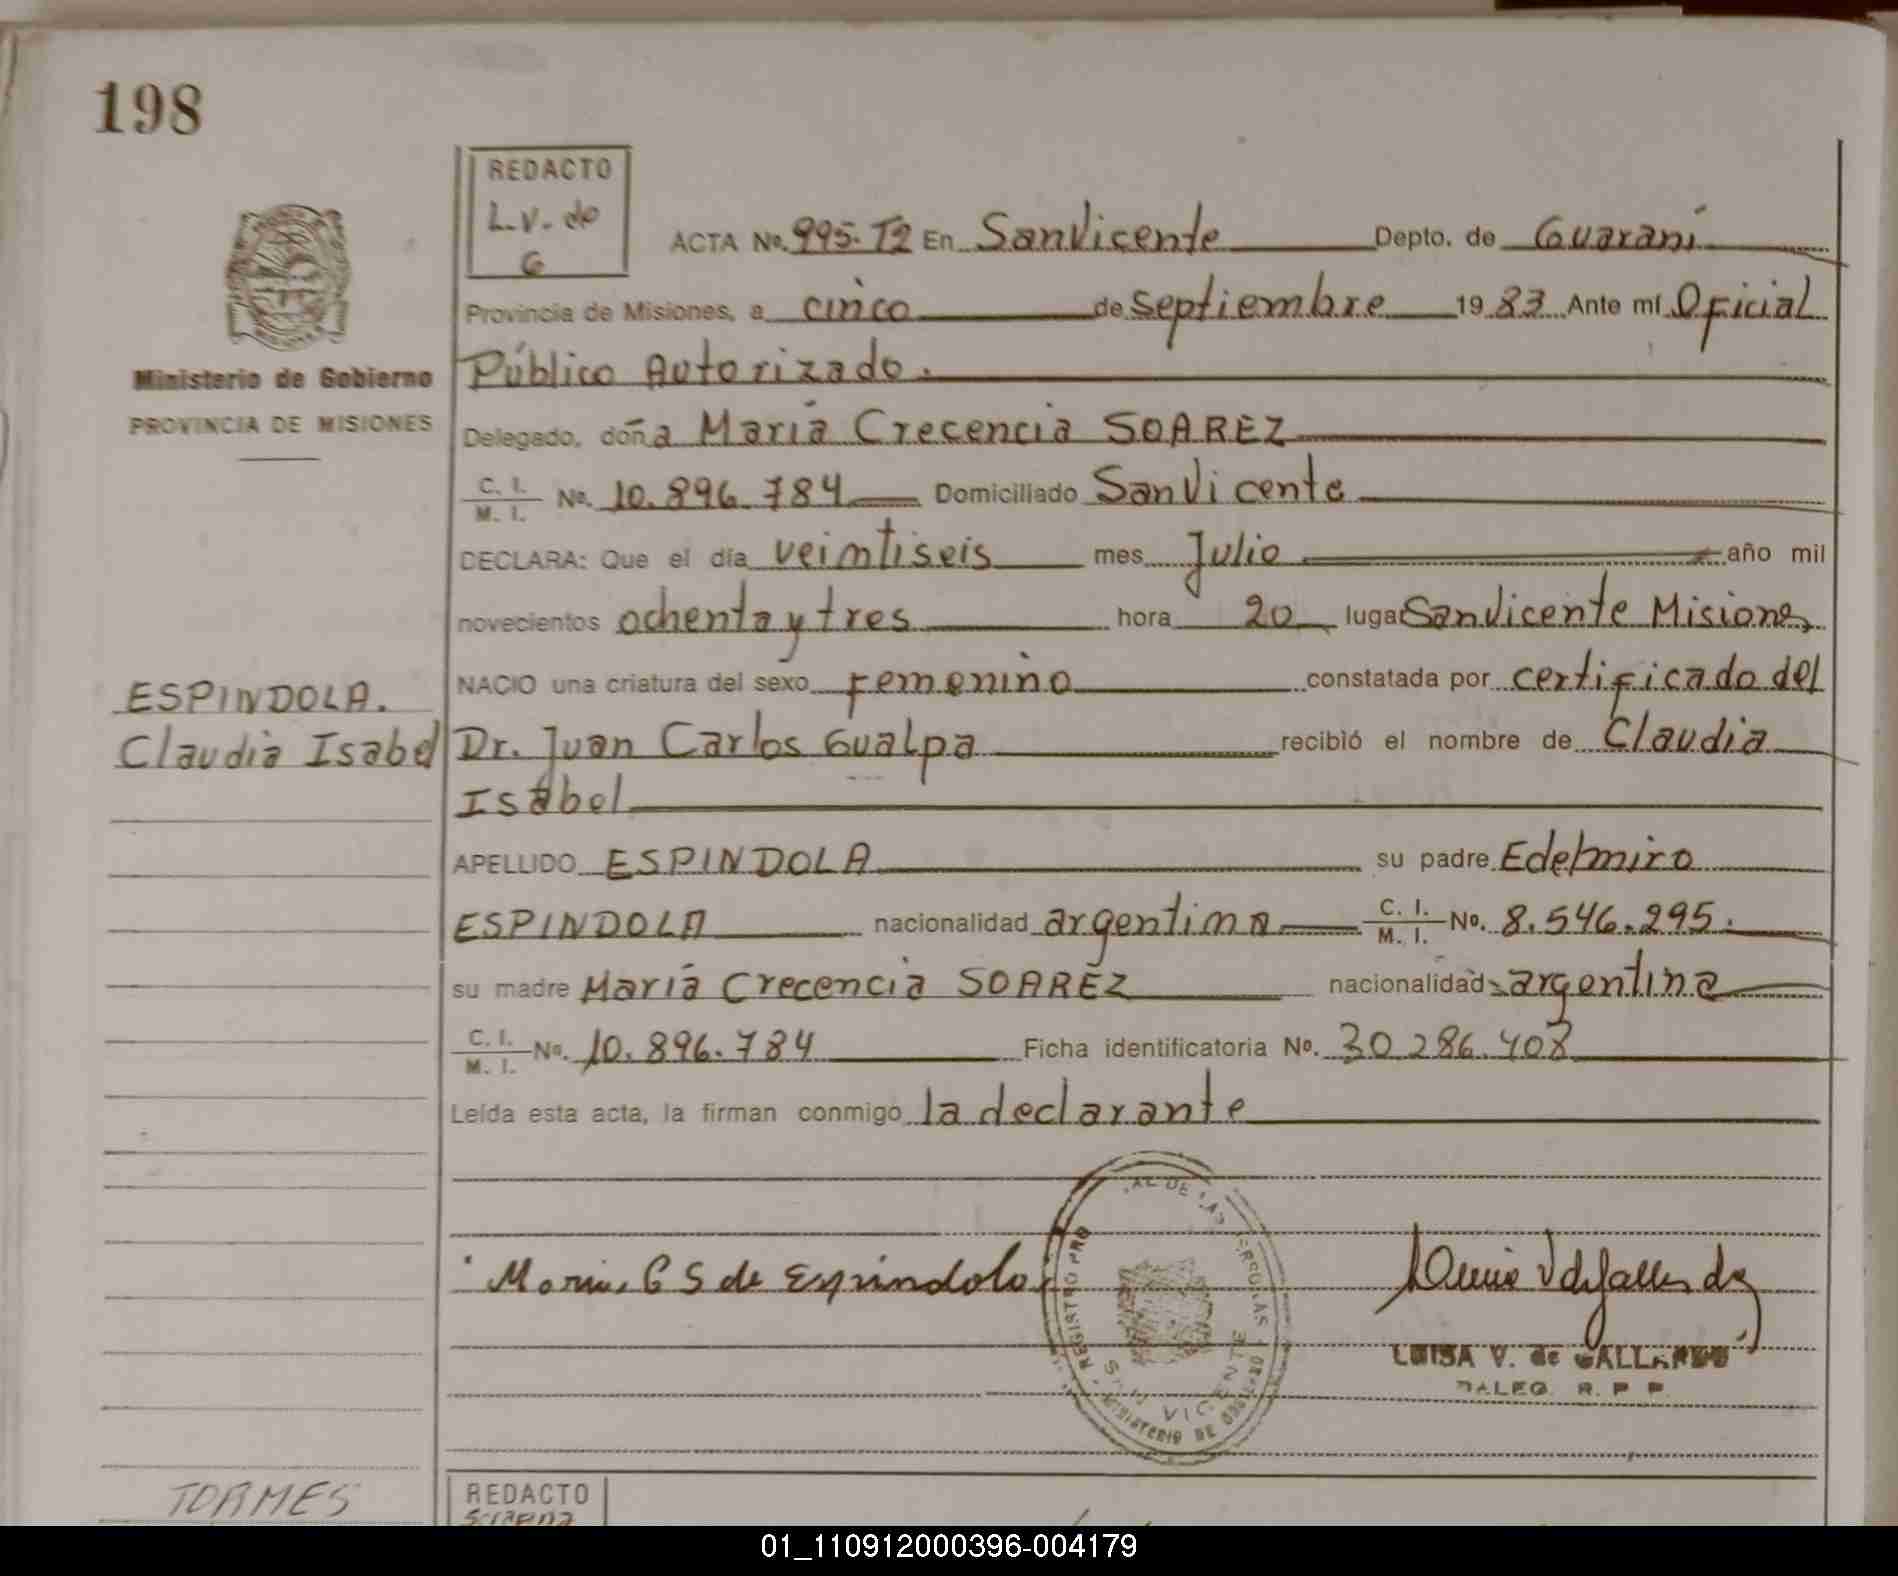 198
REDACTO
L.V. de
G
ACTA No. 995. T2 En San Vicente Depto. de Guaraní
Provincia de Misiones, a cinco de Septiembre 1983 Ante mí Oficial
Público Autorizado.
Ministerio de Gobierno
PROVINCIA DE MISIONES
Delegado, doña María Crecencia SOAREZ
C. I.
M. I. No. 10.896.784 Domiciliado San Vicente
DECLARA: Que el día veintiseis mes Julio año mil
novecientos ochenta y tres hora 20 lugar San Vicente Misiones
NACIO una criatura del sexo femenino constatada por certificado del
ESPINDOLA.
Claudia Isabel
Dr. Juan Carlos Gualpa recibió el nombre de Claudia
Isabel
APELLIDO ESPINDOLA su padre Edelmiro
ESPINDOLA nacionalidad argentina C. I.
M. I. No. 8.546.295.
su madre María Crecencia SOAREZ nacionalidad argentina
C. I.
M. I. No. 10.896.784 Ficha identificatoria No. 30 286.408
Leída esta acta, la firman conmigo la declarante
Maria C S de Espindola
REGISTRO PRO AL DE LAS PERSONAS
SAN VICENTE
MINISTERIO DE GOBIERNO
LUISA V. de GALLARDO
R. P. P.
TORMES
REDACTO
01_110912000396-004179